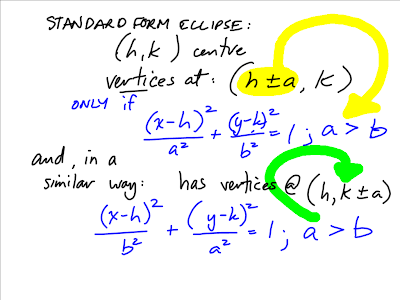 STANDARD FORM ELLIPSE:
(h, k) centre
vertices at: (h ± a, k)
ONLY if
(x-h)²/a² + (y-k)²/b² = 1 ; a > b
and, in a
similar way: has vertices @ (h, k ± a)
(x-h)²/b² + (y-k)²/a² = 1 ; a > b